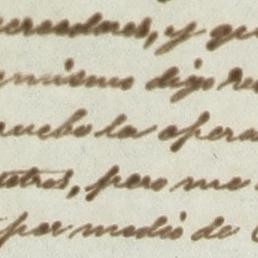 cereedores, y qu
ymismo digo re
pruebo la opera
stetros, pero me
por medio de